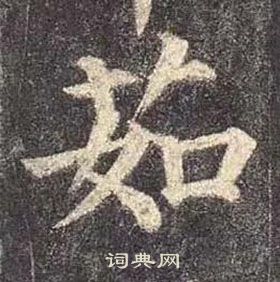 茹
词典网